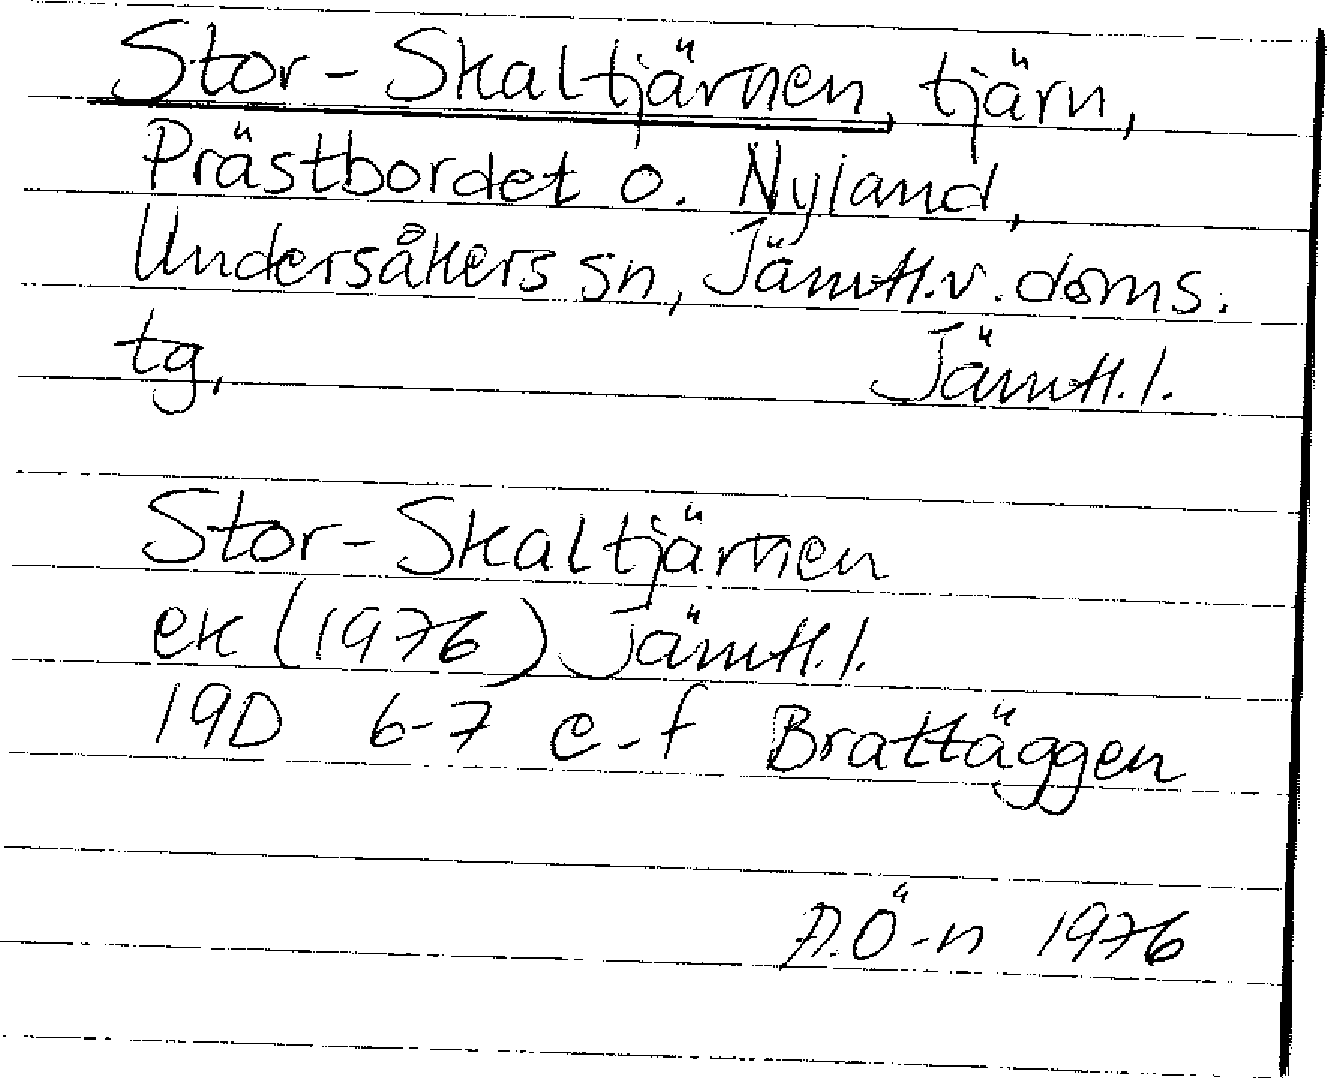 Stor-Skaltjärnen, tjärn,
Prästbordet o. Nyland,
Undersåkers sn, Jämtl.v. doms.
tg, Jämtl.l.
Stor-Skaltjärnen
ek (1976) Jämtl.l.
19D 6-7 e-f Brattäggen
A.Ö-n 1976